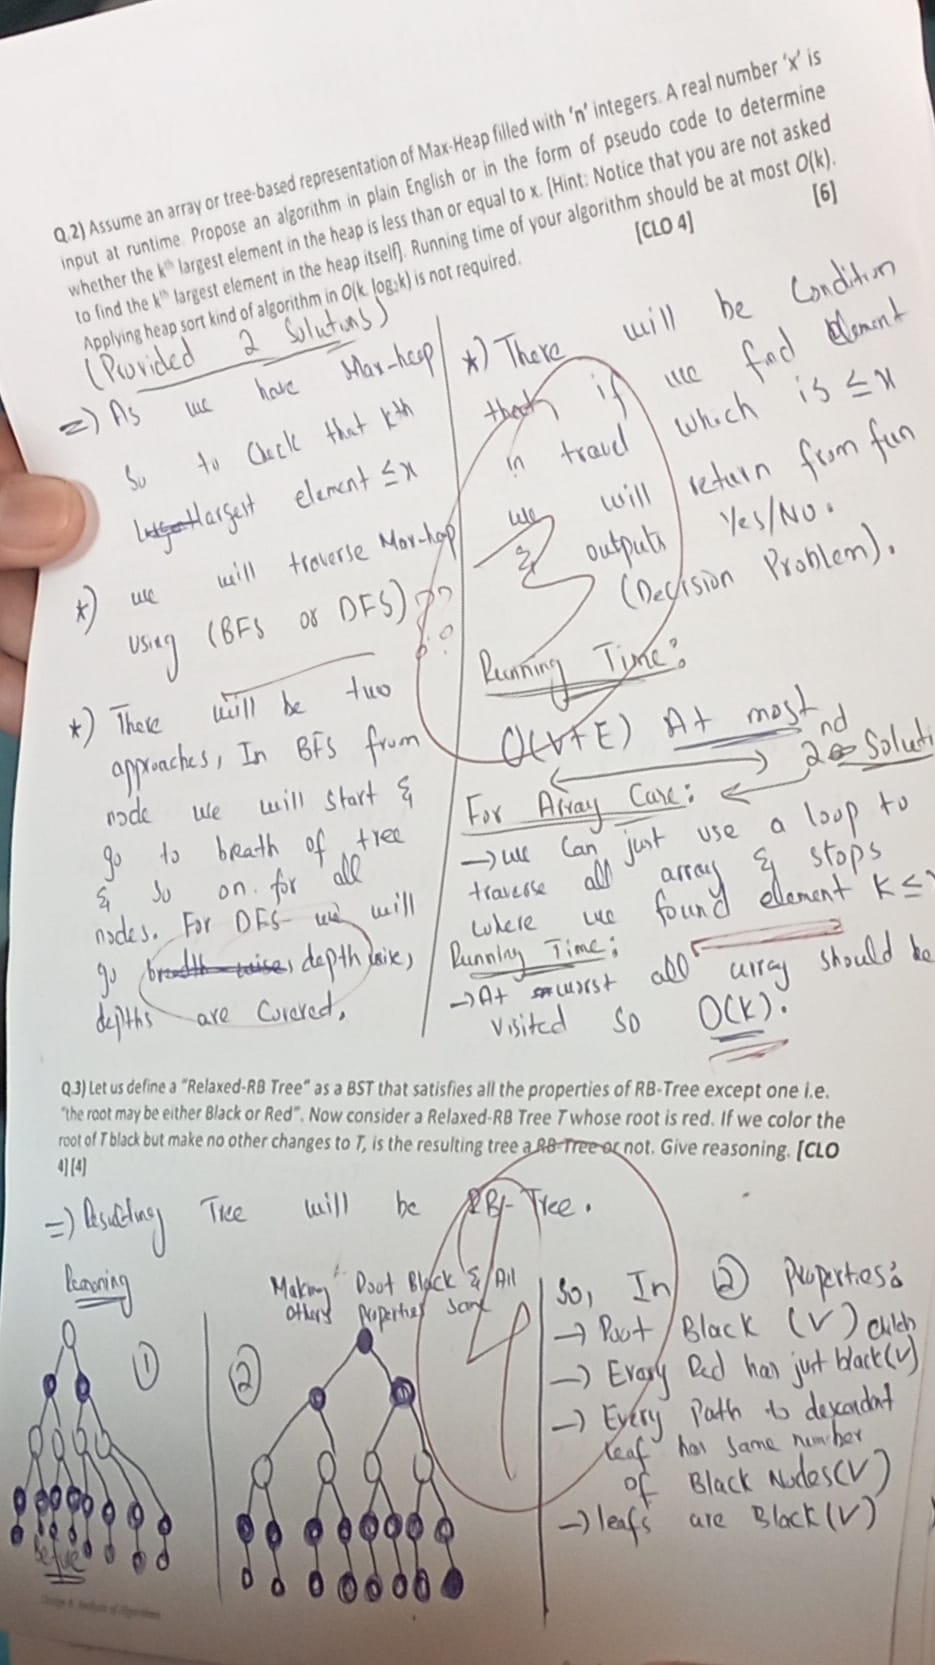 Q.2) Assume an array or tree-based representation of Max-Heap filled with 'n' integers. A real number 'x' is
input at runtime. Propose an algorithm in plain English or in the form of pseudo code to determine
whether the kth largest element in the heap is less than or equal to x. [Hint: Notice that you are not asked
to find the kth largest element in the heap itself]. Running time of your algorithm should be at most O(k).
Applying heap sort kind of algorithm in O(k log2k) is not required. [CLO 4] [6]
(Provided 2 Solutions)
=) As we have Max-heap
So to Check that kth
largest element ≤x
*) we will traverse Max-heap
using (BFS or DFS) ??
*) There will be two
approaches, In BFS from
node we will start &
go to breath of tree
& so on. for all
nodes. For DFS we will
go depth wise,
depths are Covered.
*) There will be Condition
that if we find element
in travel which is ≤x
we will return from fun
& outputs Yes/No.
(Decision Problem).
3
Running Time:
O(V+E) At most
2nd Soluti
For Array Case:
→ we Can just use a loop to
traverse all array & stops
where we found element K≤
Running Time:
→ At worst all array should be
visited so O(K).
Q.3) Let us define a "Relaxed-RB Tree" as a BST that satisfies all the properties of RB-Tree except one i.e.
"the root may be either Black or Red". Now consider a Relaxed-RB Tree T whose root is red. If we color the
root of T black but make no other changes to T, is the resulting tree a RB-Tree or not. Give reasoning. [CLO
4] [4]
=) Resulting Tree will be RB-Tree.
Reasoning
①
Before
Making Root Black & All
others Properties Same
②
4
So, In ② Properties:
→ Root Black (V)
→ Every Red has just black(V) child
→ Every Path to descendant
leaf has same number
of Black Nodes(V)
→ leafs are Black(V)
Design & Analysis of Algorithms